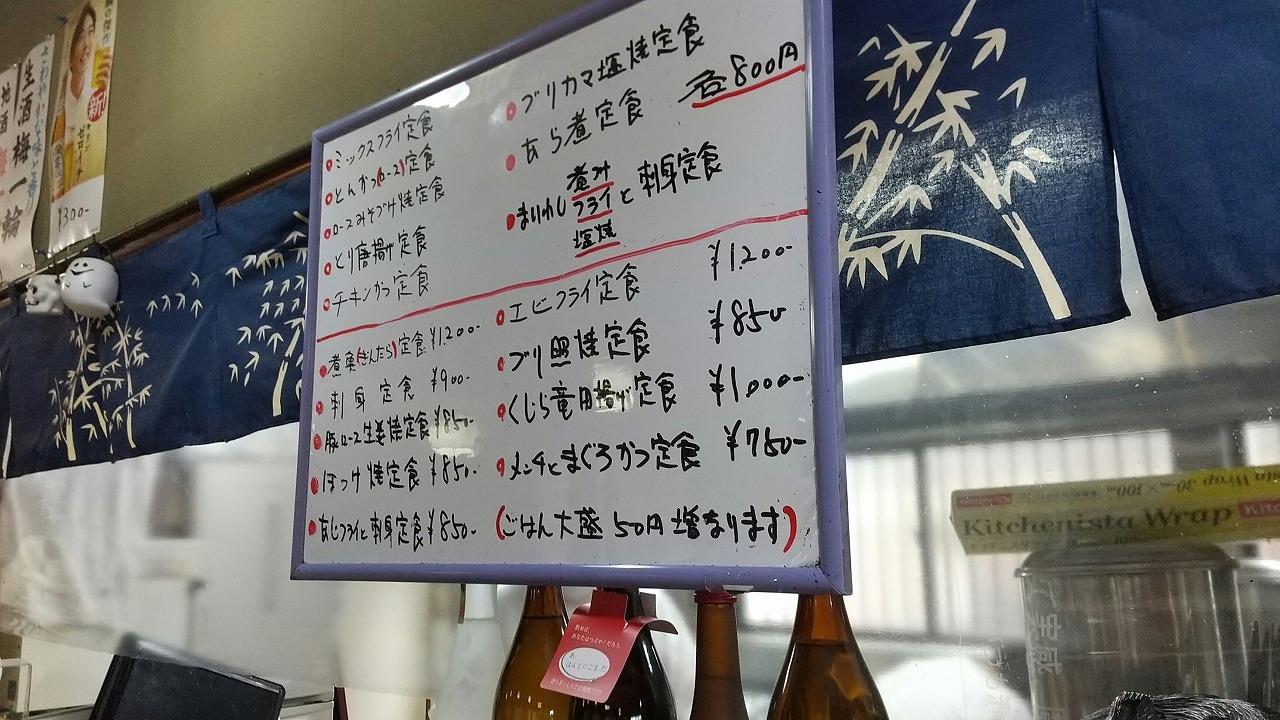 生酒梅一輪
地酒
新
¥300-
・ミックスフライ定食
・とんかつ(ロース)定食
・ロースみそづけ焼定食
・とり唐揚げ定食
・チキンかつ定食
・ブリカマ塩焼定食
・あら煮定食
各800円
煮汁
・まいわしフライと刺身定食
塩焼
・煮魚(ぎんだら)定食 ¥1.200-
・刺身定食 ¥900-
・豚ロース生姜焼定食 ¥850-
・ほっけ焼定食 ¥850-
・あじフライと刺身定食 ¥850-
・エビフライ定食 ¥1.200-
・ブリ照焼定食 ¥850
・くじら竜田揚げ定食 ¥1,000-
・メンチとまぐろかつ定食 ¥750-
(ごはん大盛 50円増なります)
Kitchenista Wrap
ta Wrap 30cm×100m
実感